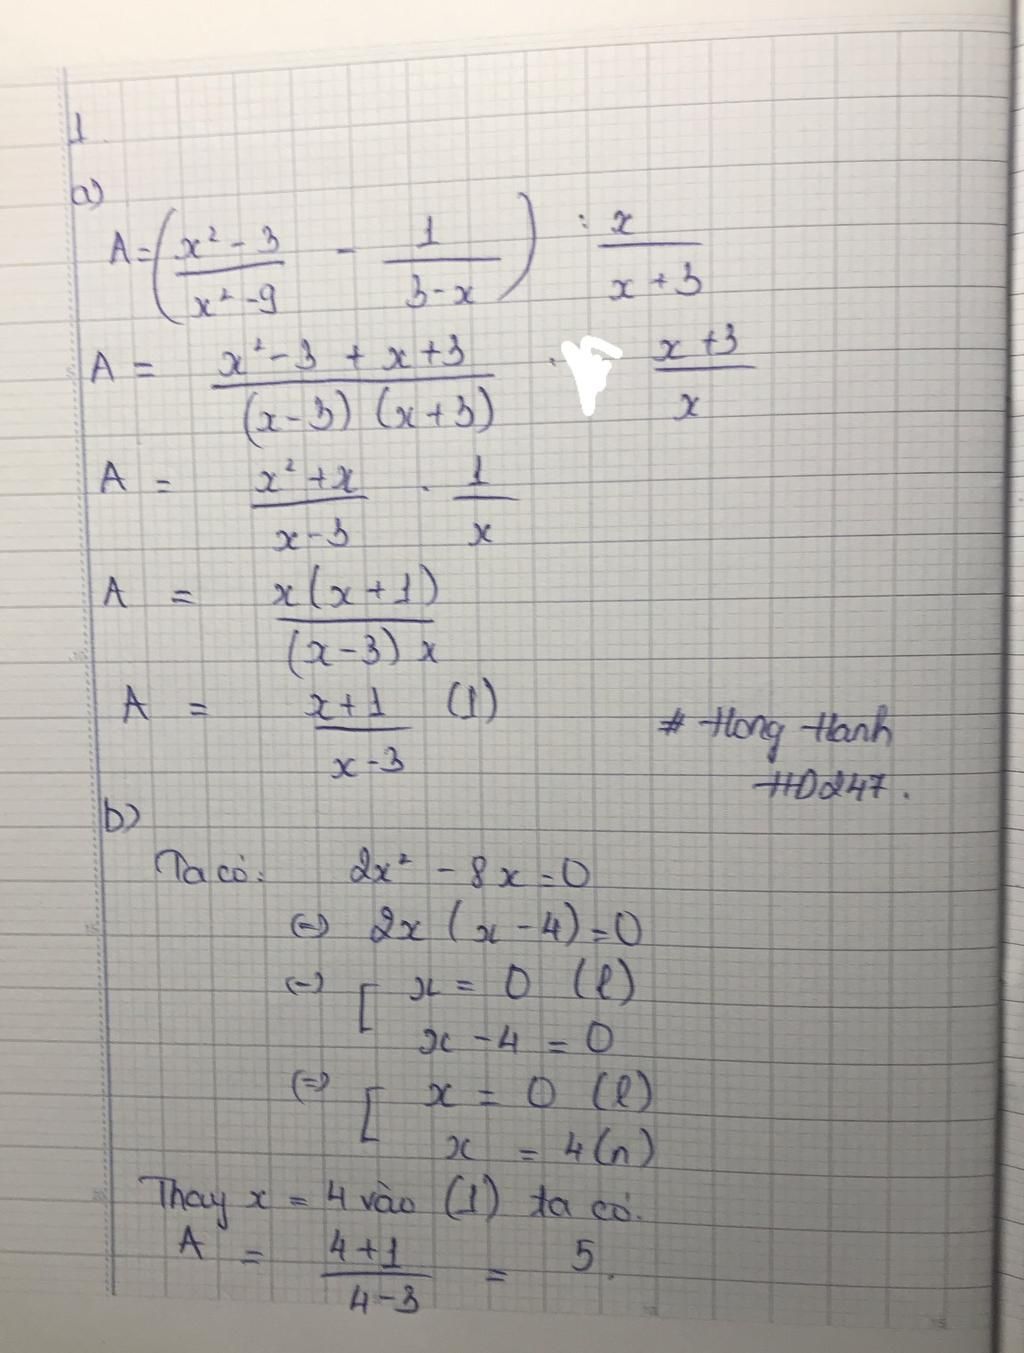 1.
a)
A = (x² - 3 / x² - 9 - 1 / 3 - x) : x / x + 3
A = x² - 3 + x + 3 / (x - 3) (x + 3) . x + 3 / x
A = x² + x / x - 3 . 1 / x
A = x(x + 1) / (x - 3) x
A = x + 1 / x - 3 (1)
# Hong Hanh
HD247.
b)
Ta có: 2x² - 8x = 0
(=) 2x (x - 4) = 0
(=) [ x = 0 (l)
x - 4 = 0
(=) [ x = 0 (l)
x = 4 (n)
Thay x = 4 vào (1) ta có.
A = 4 + 1 / 4 - 3 = 5.